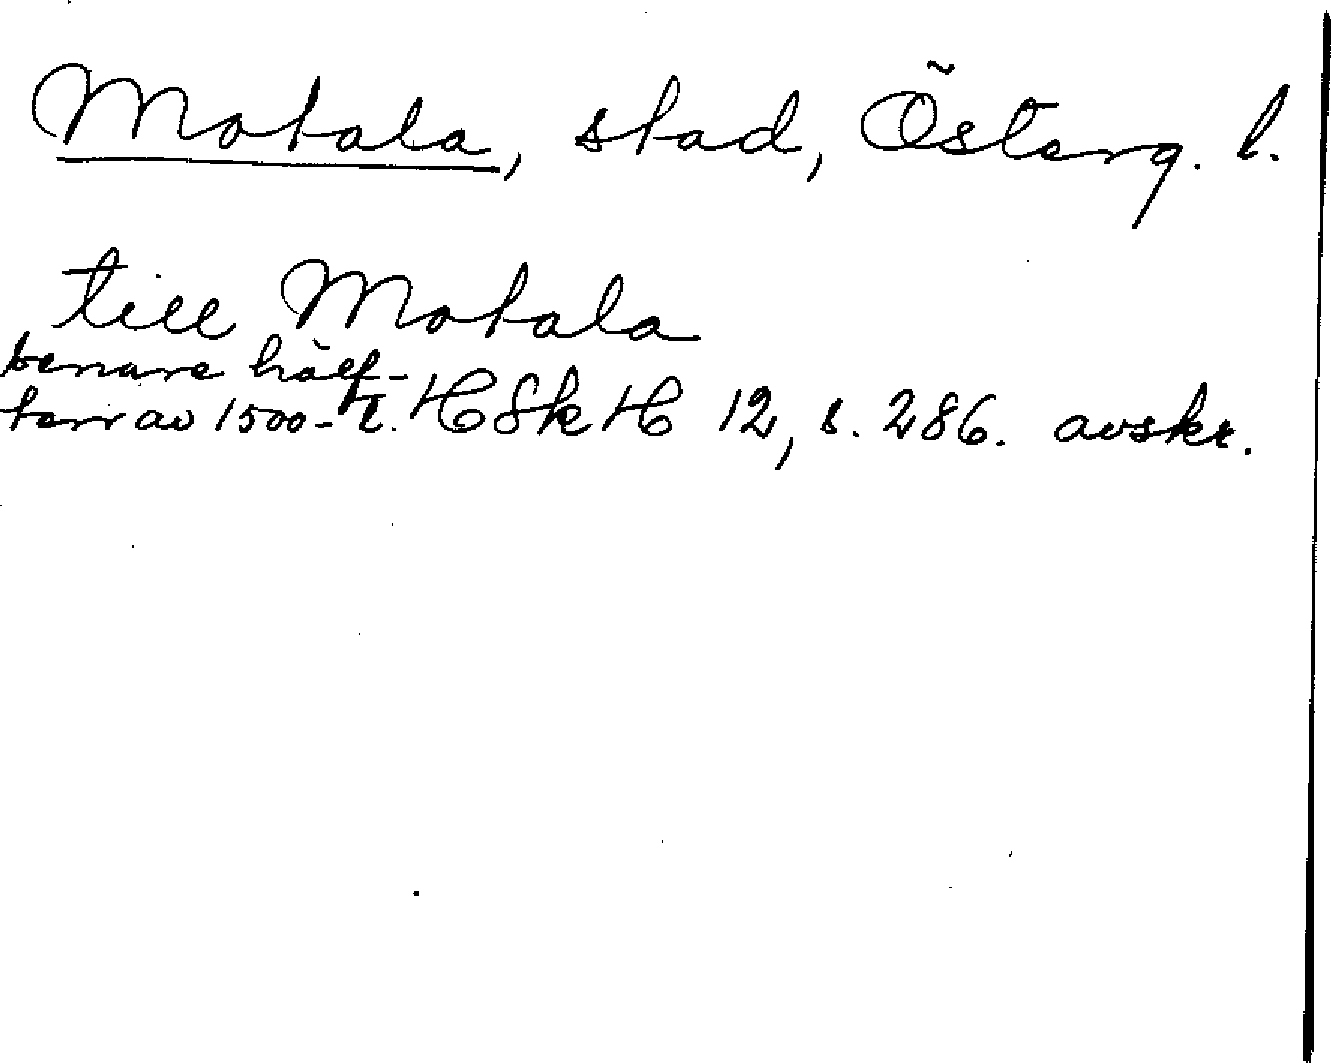 Motala, stad, Österg. l.
till Motala
senare hälf-
ten av 1500-t. HSkH 12, s. 286. avskr.